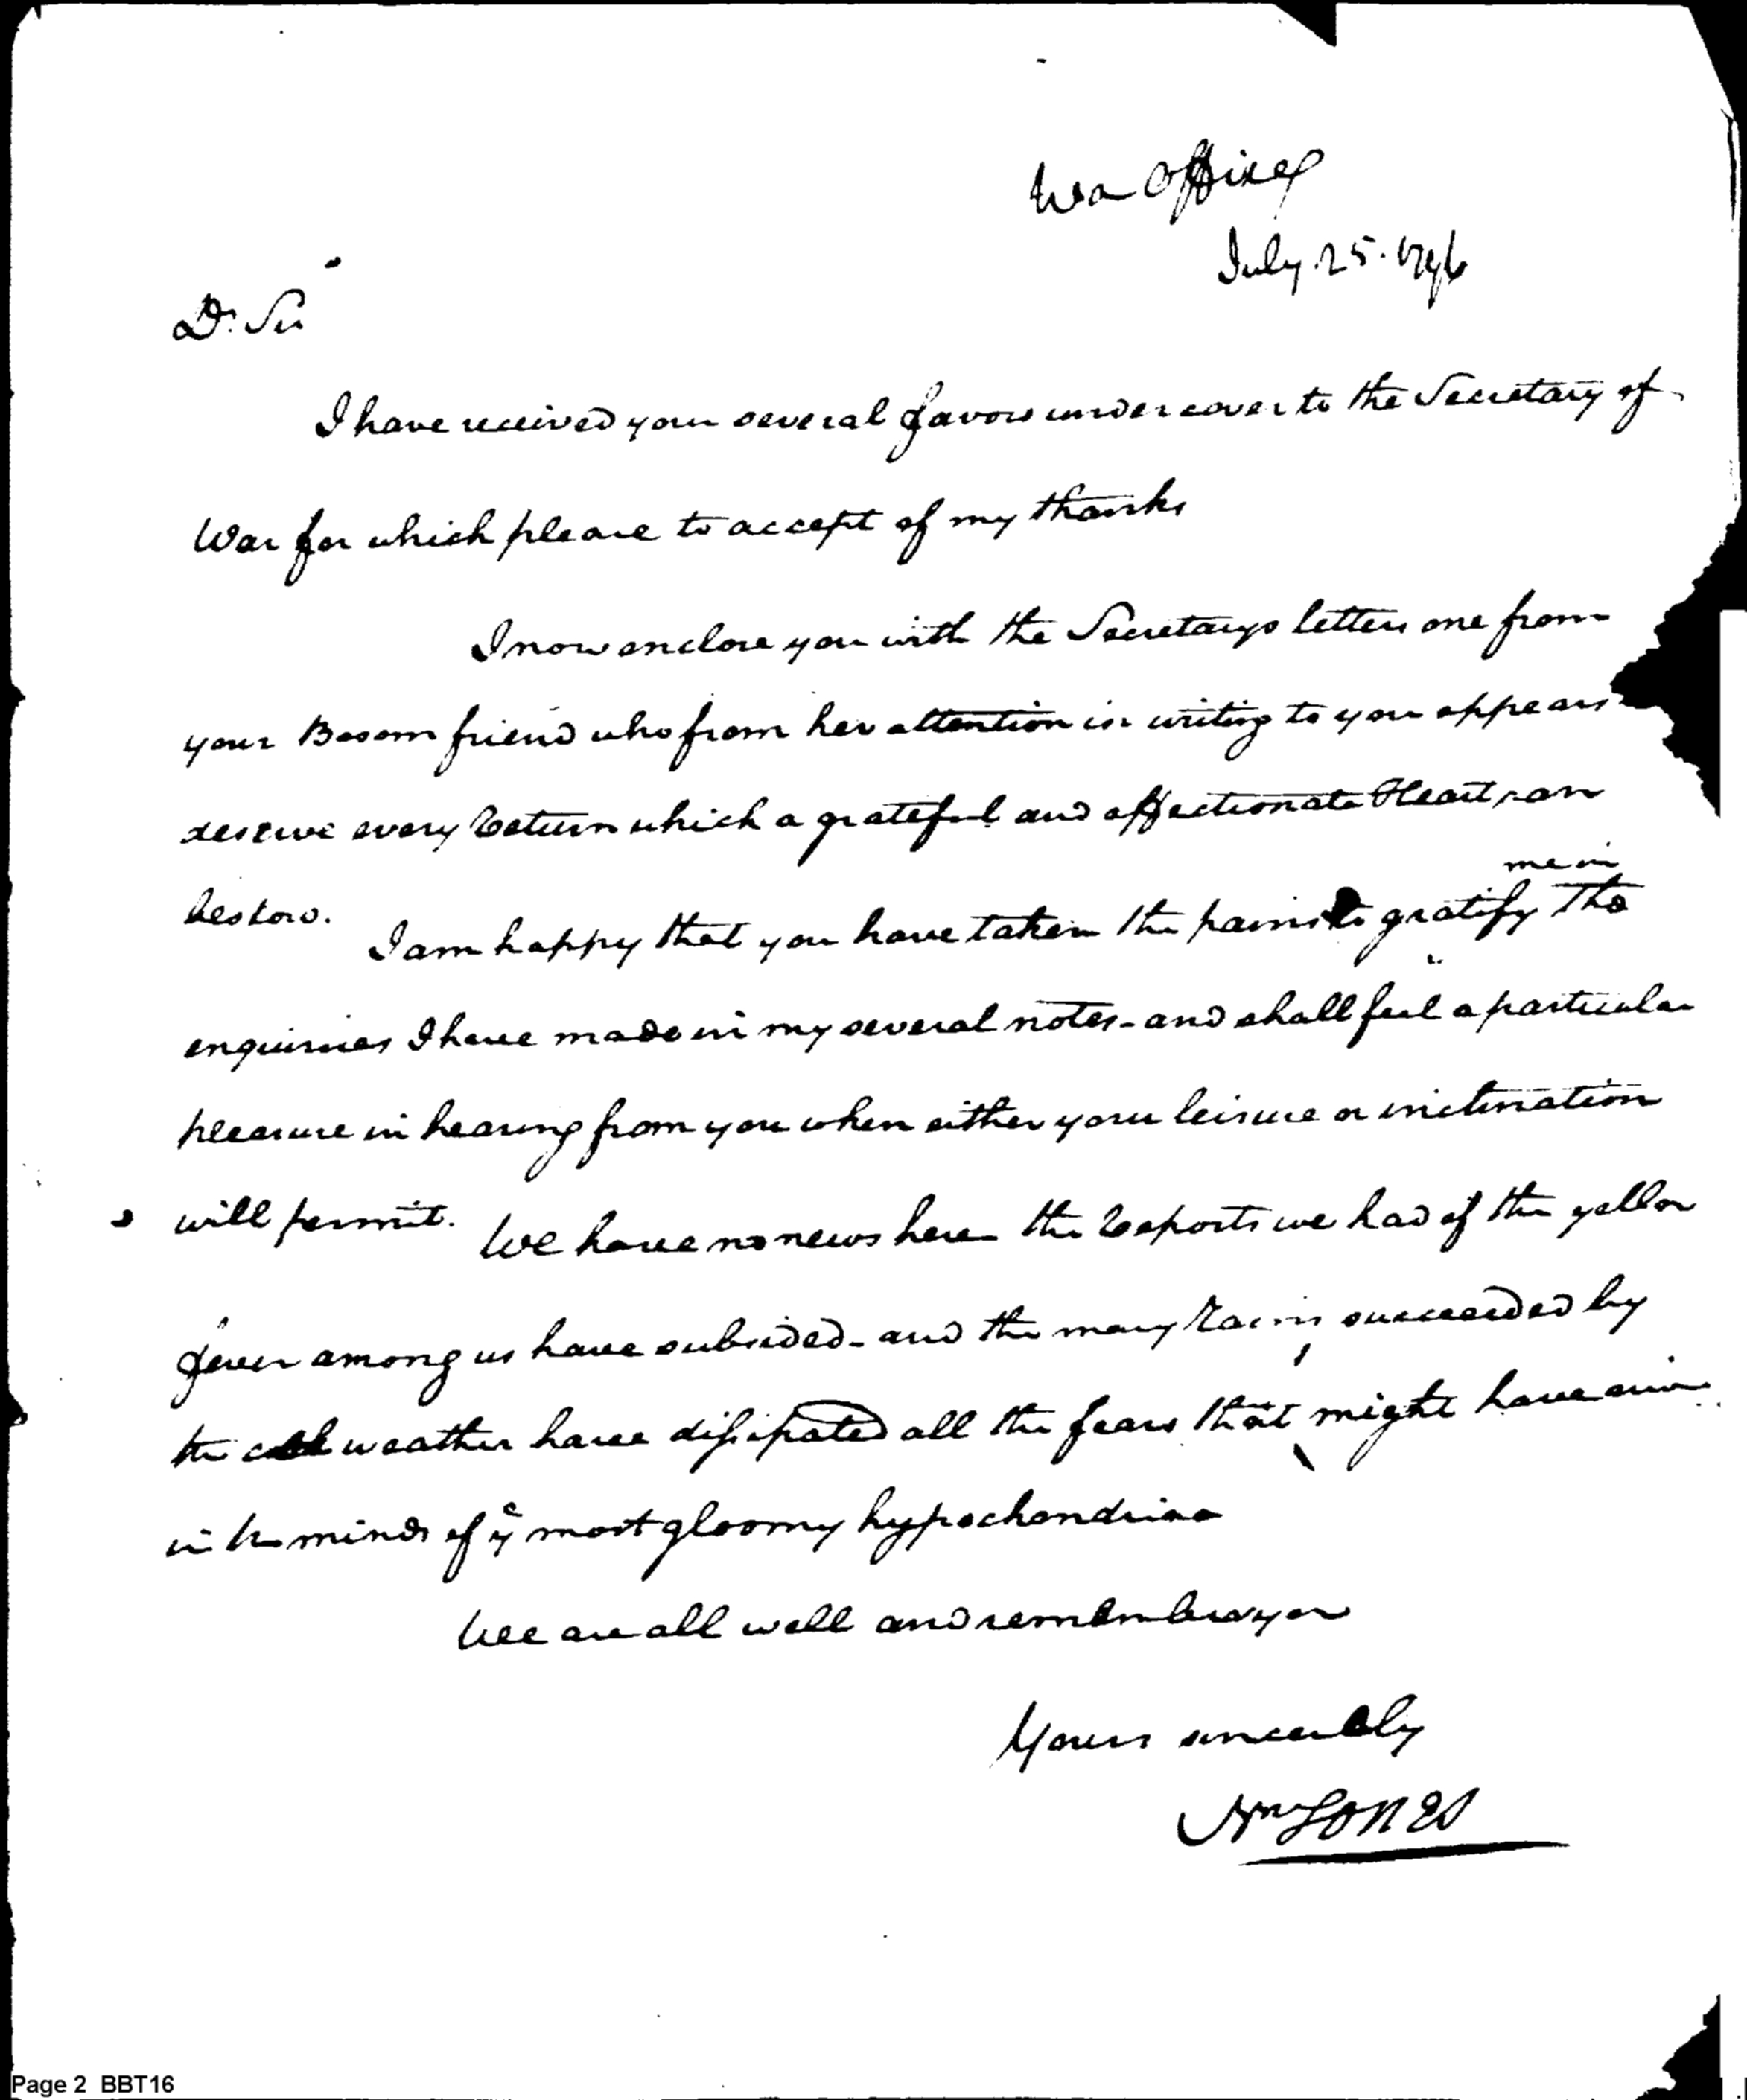 War Office
July 25. 1796
Dr. Sir
I have received your several favors under cover to the Secretary of
War for which please to accept of my thanks
I now enclose you with the Secretarys letters one from
your Bosom friend who from her attention in writing to you appears
deserve every return which a grateful and affectionate Heart can
bestow.
me in
I am happy that you have taken the pains to gratify the
enquiries I have made in my several notes - and shall feel a particular
pleasure in hearing from you when either your leisure or inclination
will permit. We have no news here the reports we had of the yellow
fever among us have subsided - and the many rains succeeded by
the cool weather have dissipated all the fears that might have
in the minds of ye most gloomy hypochondriac
We are all well and remember you
Yours sincerely
Jones
Page 2 BBT16